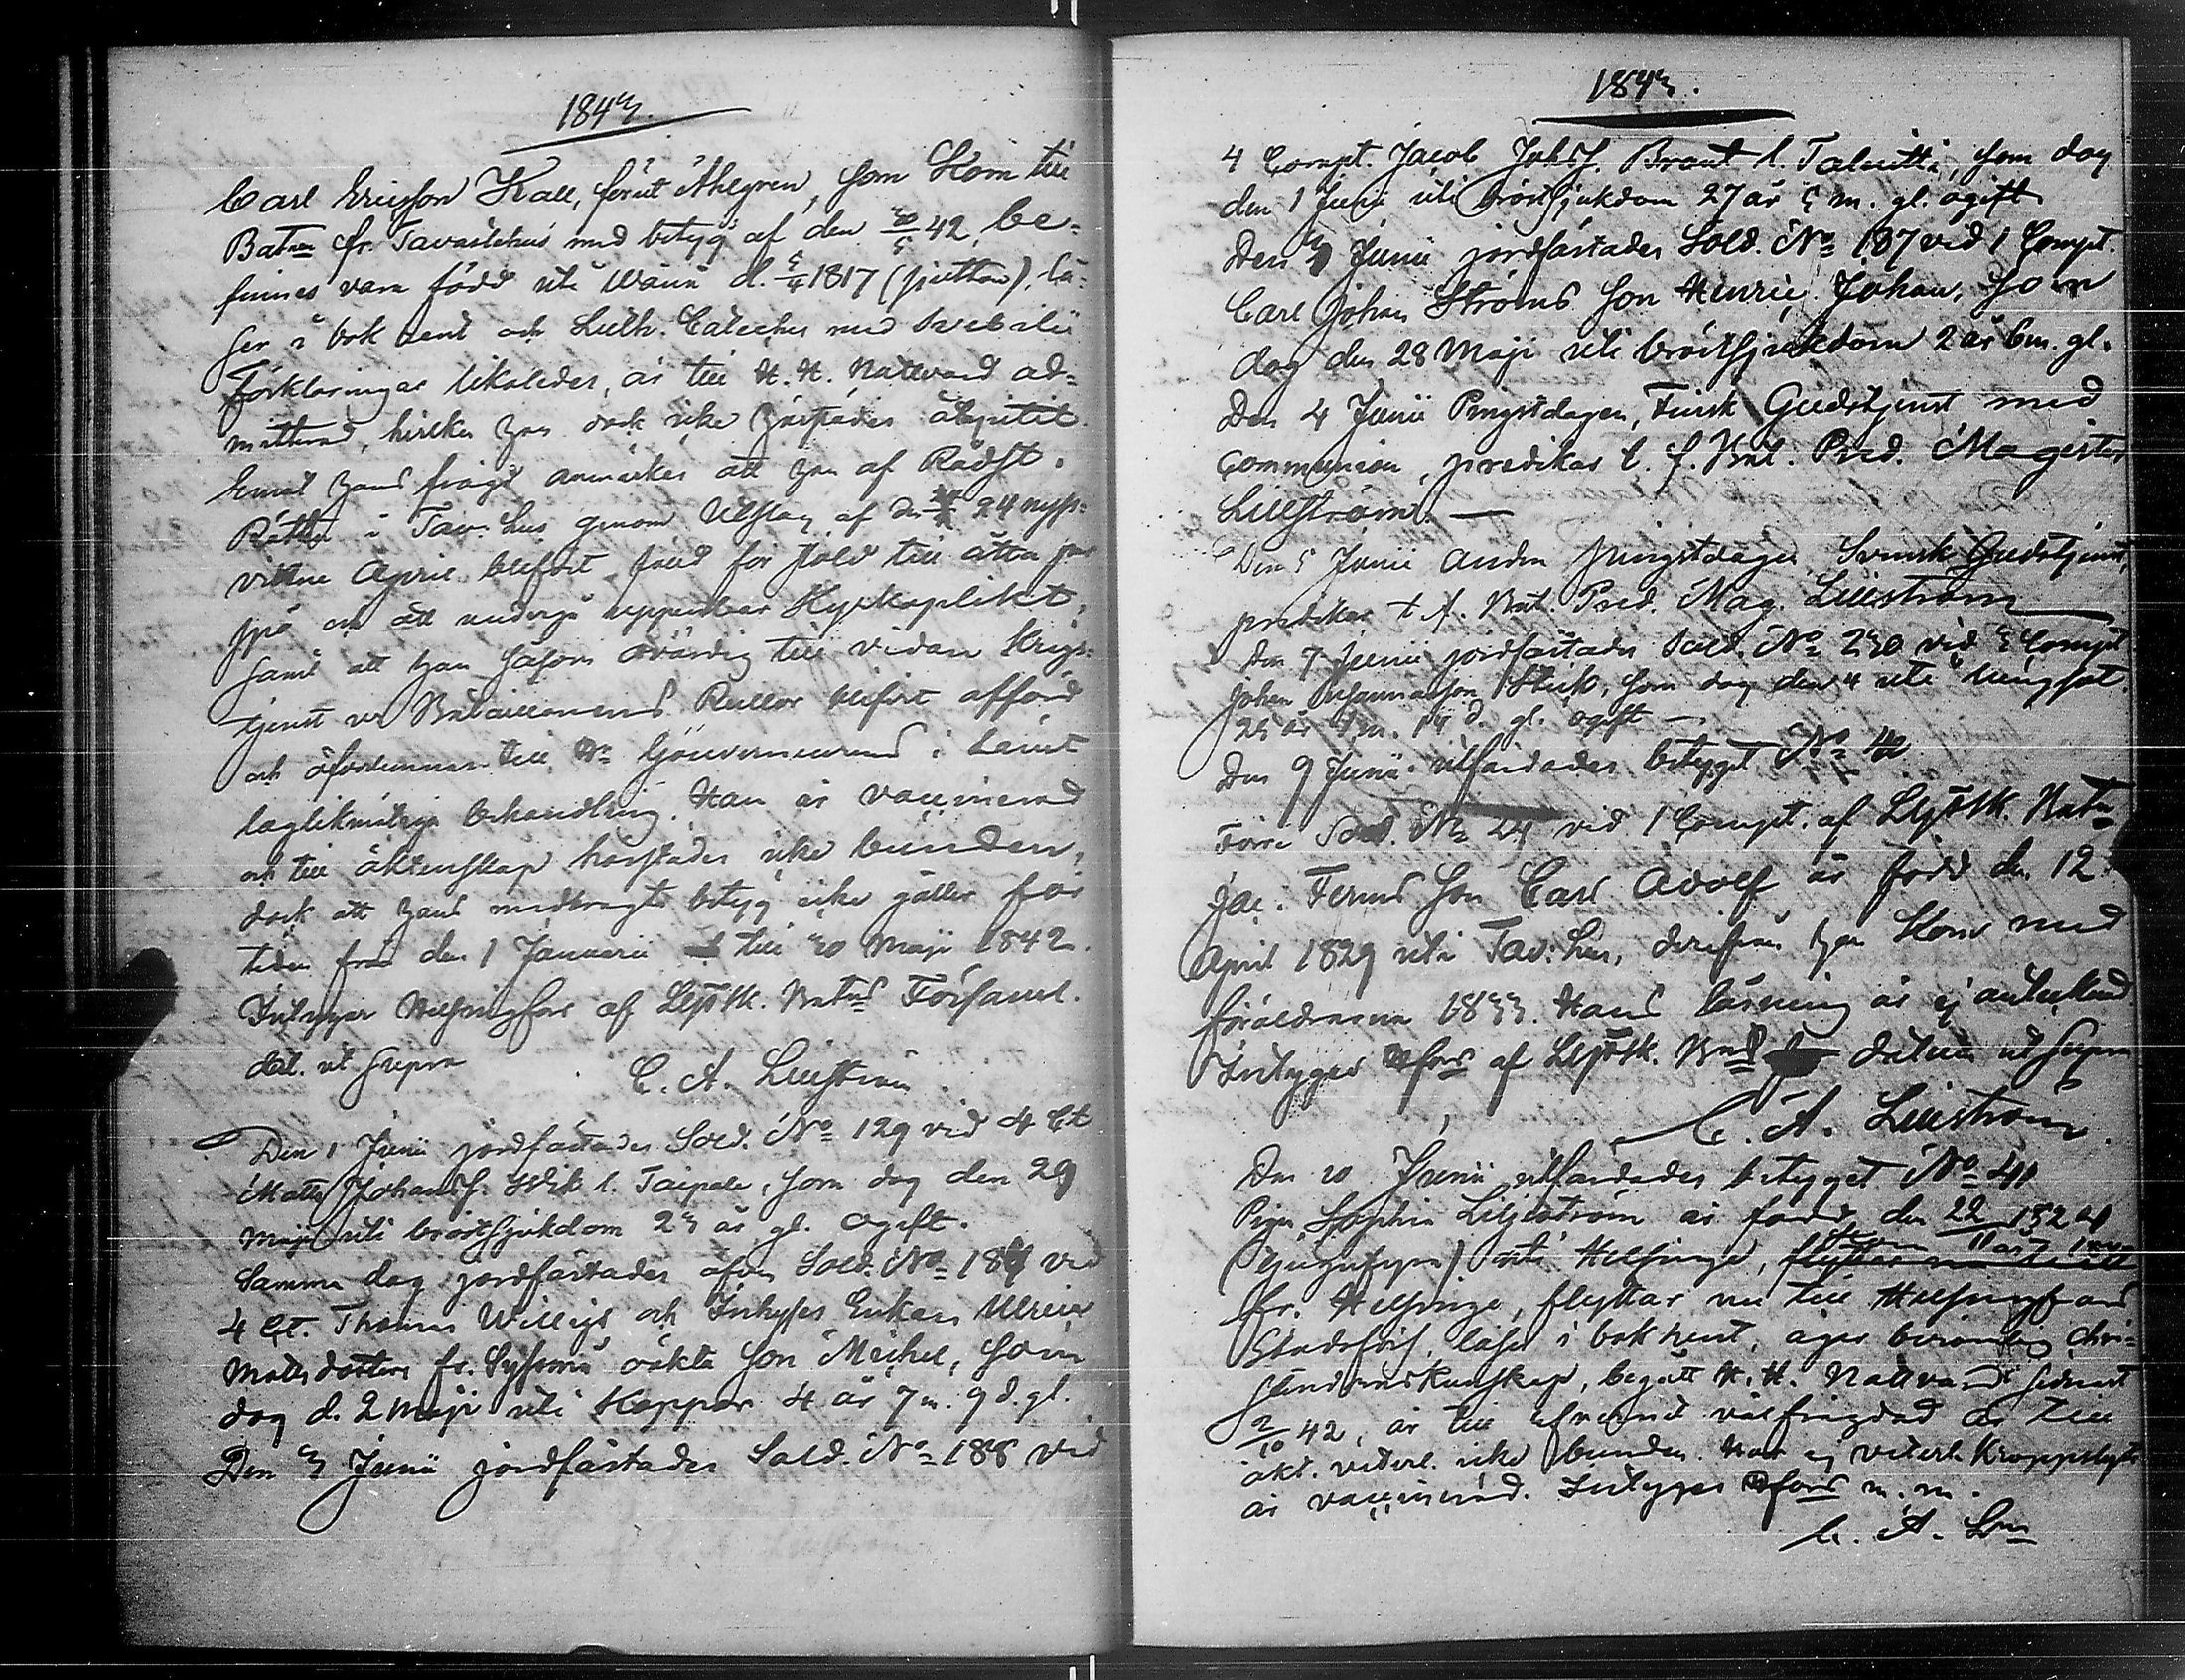 1843.
Carl Ericsson Kall, förut Åhlgren, som Kom till
Batn fr. Tavastehus med betyg af den 30/5 42, be-
finnes vara född uti Wånå d. 5/4 1817 (sjutton), lä-
ser i bok rent och Luth. Cateches med Svebilii
förklaringar likaledes, är till H. H. Nattvard ad-
mitterad, hvilken han dock icke härstädes åtnjutit.
Emot hans frägd anmärkes att han af Rådst.
Rätten i Tav. hus genom Utslag af den 24 nyss-
vikne April blifvit fäld för stöld till åtta par
spö och att undergå uppenbar Kyrkoplikt,
samt att han såsom ovärdig till vidare Krigs-
tjenst ur Bataillonens Rullor blifvit afförd
och öfverlemnas till Hr Gouverneurens i Länet
laglikmätiga behandling. Han är vaccinerad
och till äktenskap härstädes icke bunden,
dock att hans medbragte betyg icke gäller för
tiden från den 1 Januarii till 30 Maji 1842.
Intygar Helsingfors af LijfSk. Batns Församl.
dat. ut supra
C. A. Liliström
Den 1 Junii jordfästades Sold. No 129 vid 4 Ct
Matts Johanss. Wik l. Taipale, som dog den 29
Maji uti bröstsjukdom 23 år gl. ogift.
Samma dag jordfästades äfven Sold. No 184 vid
4 Ct. Thomas Willigs och Inhyses Enkan Ulrica
Mattsdotters fr. Sysmä oäkta son Michel, som
dog d. 2 Maji uti Koppor 4 år 7 m. 9 d. gl.
Den 3 Junii jordfästades Sold. No 188 vid
1843.
4 Compt. Jacob Johss. Brant l. Talvitti, som dog
den 1 Junii uti bröstsjukdom 27 år 5 m. gl. ogift
Den 3 Junii jordfästades Sold. No 187 vid 1 Compt.
Carl Johan Ströms son Henric Johan, som
dog den 28 Maji uti bröstsjukdom 2 år 6 m. gl.
Den 4 Junii Pingstdagen, Finsk Gudstjenst med
Communion, predikar t. f. Bat. Pred. Magister
Lillström. —
Den 5 Junii Andra Pingstdagen Svensk Gudstjenst,
predikar t. f. Bat. Pred. Mag. Lillström
Den 7 Junii jordfästades Sold. No 230 vid 3 Compt
Johan Skik, som dog den 4 uti lungsot.
25 år 1 m. 14 d. gl. ogift —
Den 9 Junii utfärdades betyget No 42
Förre Sold. No 24 vid 1 Compt. af LijfSk. Batn
Jac. Ferms son Carl Adolf är född den 12
April 1829 uti Tav:hus, derifrån han Kom med
föräldrarna 1833. Hans läsning är ej antecknad.
Intygas Hfors af LijfSk. Bns datum ut supra
C. A. Liliström.
Den 10 Junii utfärdades betyget No 41
Pigan Sophia Liljeström är född den 22/11 1824
(tjugufyra) uti Helsinge,
fr. Helsinge, flyttar nu till Helsingfors
Stadsförs. läser i bok rent, äger christen-
domskunskap, begått H. H. Nattvard senast
2/10 42, är till välfrägdad och till
äkt. veterl. icke bunden. Har ej veterl. Kroppslyte
är vaccinerad. Intygas Hfors m. m.
C. A. Lm